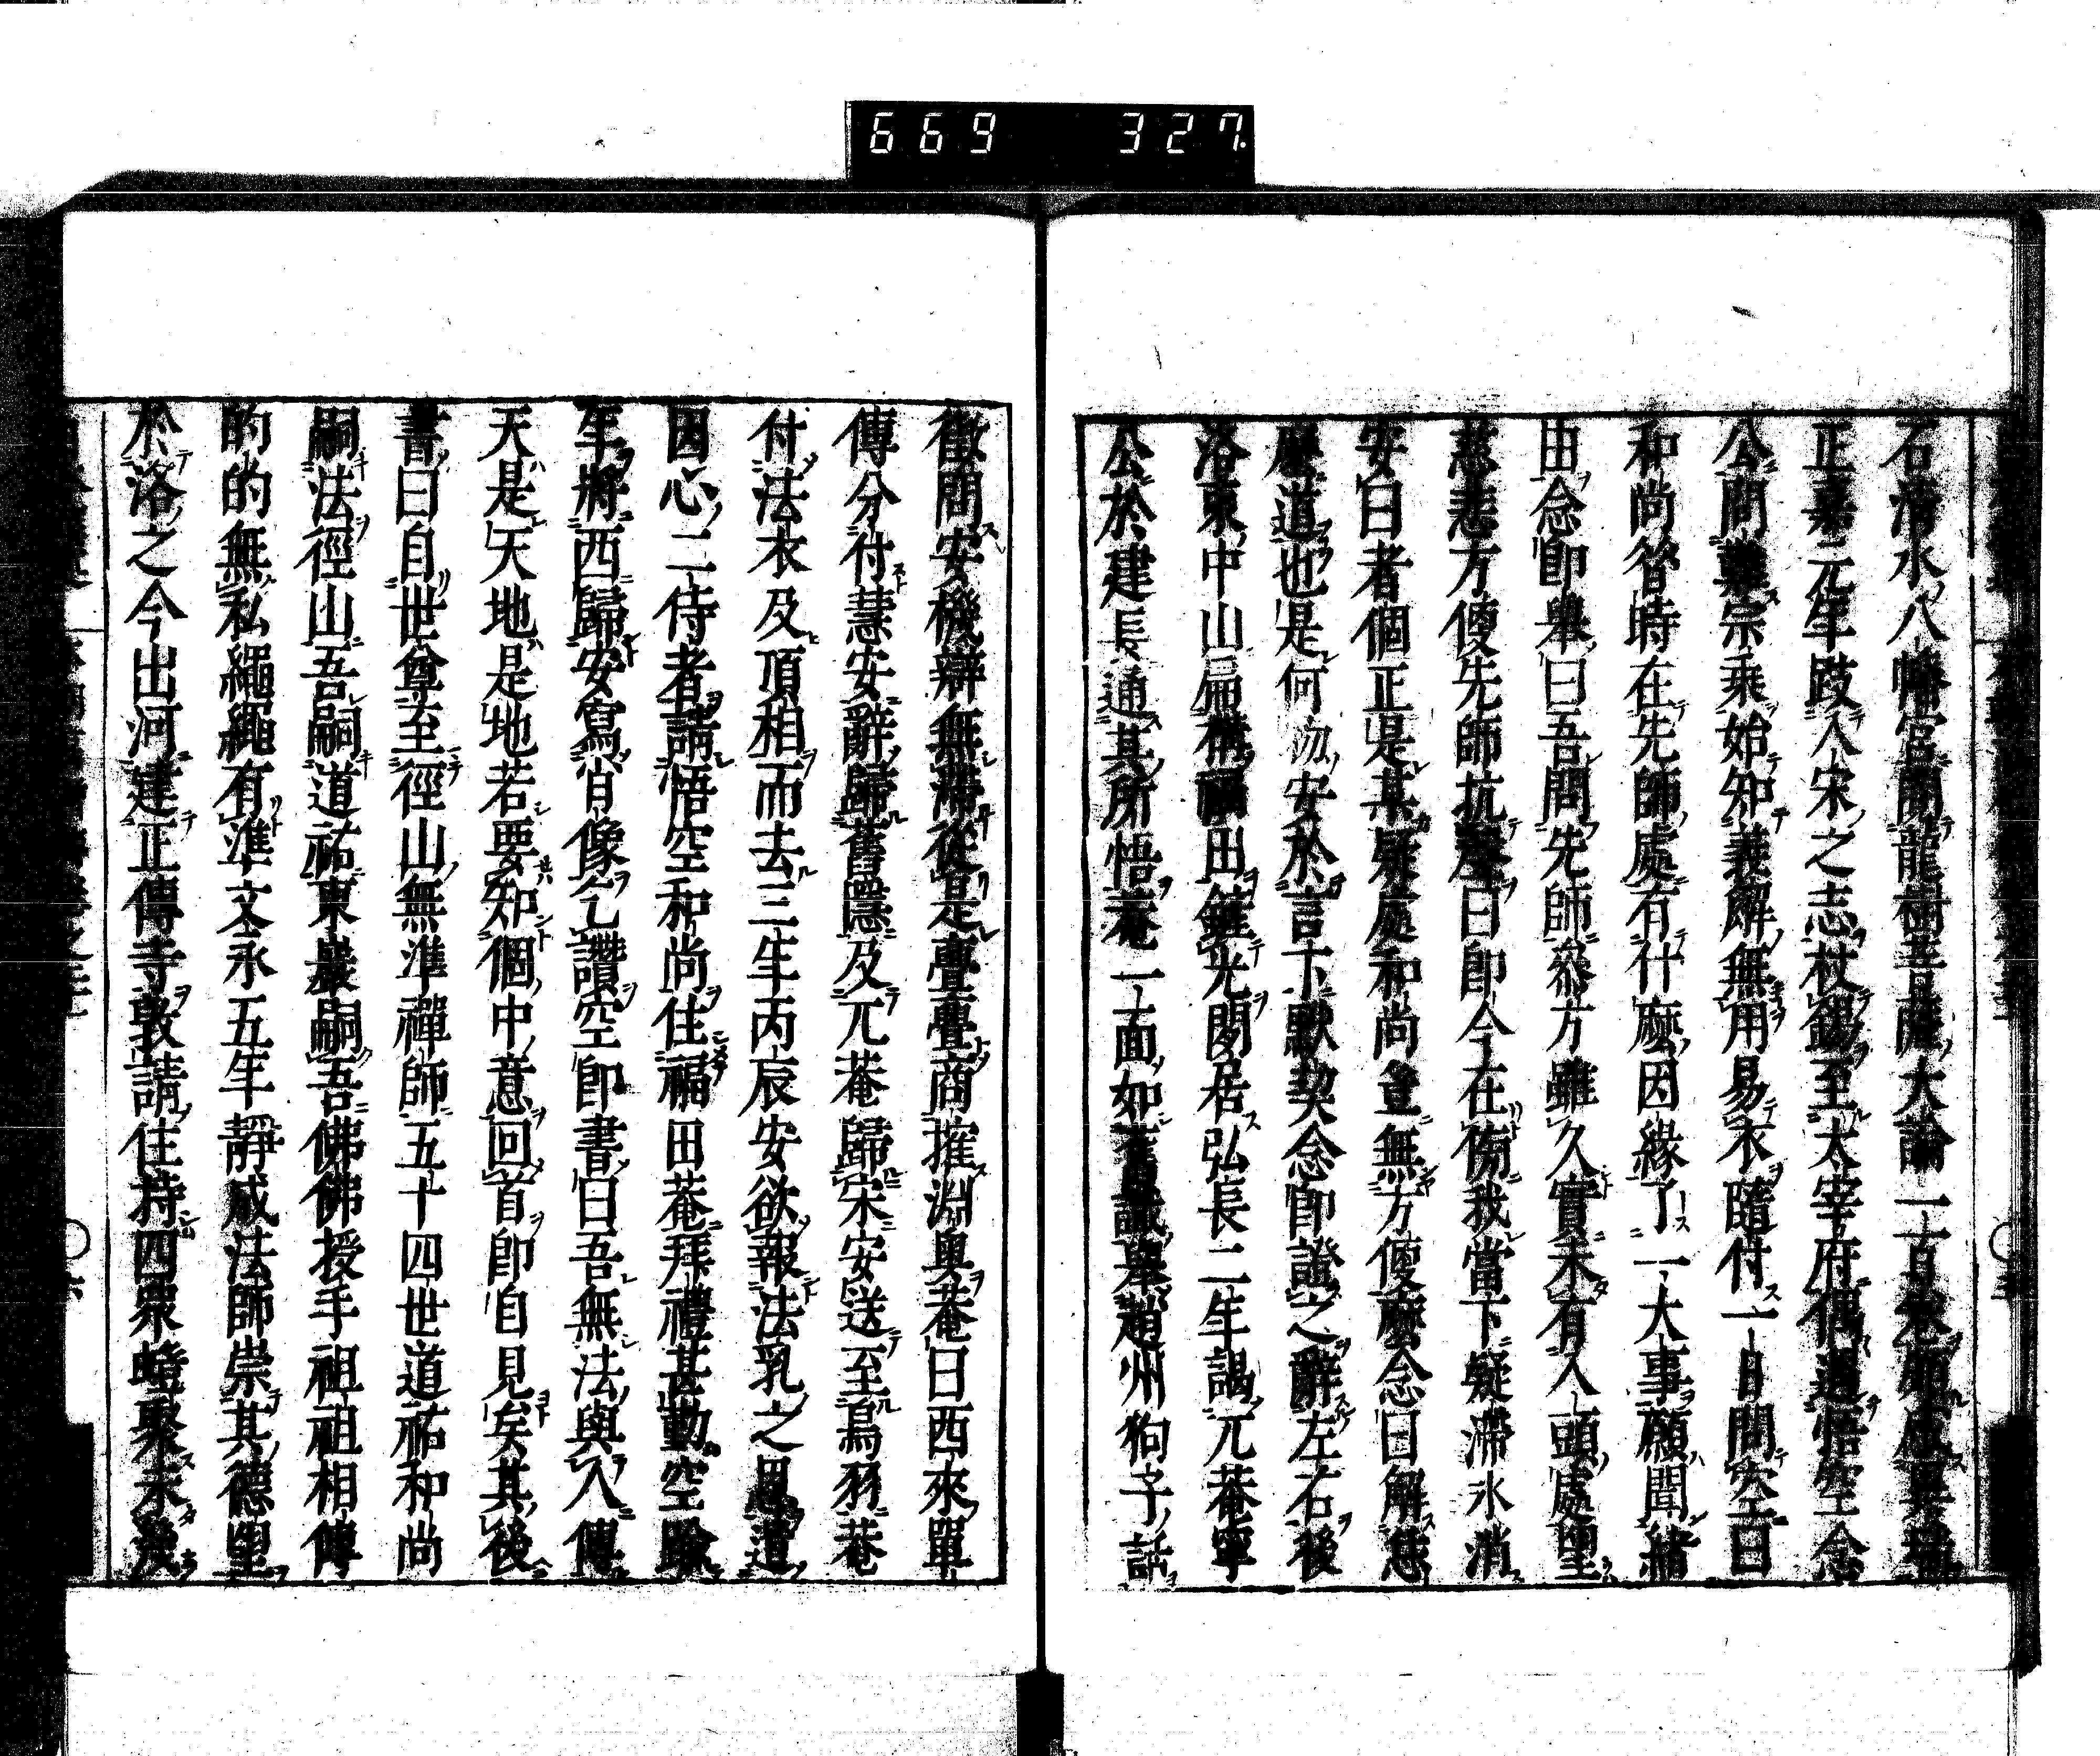 669 327
石清水八幡宮開龍樹菩薩大論一百卷頗感異瑞
正嘉元年跂入宋之志杖錫至太宰府偶遇悟空念
公問難宗乘始知義解無用易衣隨付一日問空曰
和尚昝時在先師處有什麼因緣了一大事願聞緒
由念即舉曰吾問先師參方雖久實未有入頭處望
慈悲方便先師抗聲曰即今在傍我當下疑滯氷消
安曰者個正是某疑處和尚豈無方便麼念曰解恁
麼道也是何泑安於言下默契念即證之辭左右後
洛東中山扁構福田鏟光閑居弘長二年謁兀菴寧
公於建長通其所悟菴一面如舊識舉趙州狗子話
徵問安機辯無滯從是亹亹商搉淵奧菴曰西來單
傳分付慧安辭歸舊隱及兀菴歸宋安送至鳥羽菴
付法衣及頂相而去三年丙辰安欲報法乳之恩遣
因心二侍者請悟空和尚住福田菴拜禮甚勤空瞼
年將西歸安寫肖像乞讚空即書曰吾無法與人傳
天是天地是地若要知個中意回首即自見矣其後
書曰自世尊至徑山無準禪師五十四世道祐和尚
嗣法徑山吾嗣道祐東巖嗣吾佛佛授手祖祖相傳
的的無私繩繩有準文永五年靜成法師崇其德望
於洛之今出河建正傳寺敦請住持四眾螘聚未幾